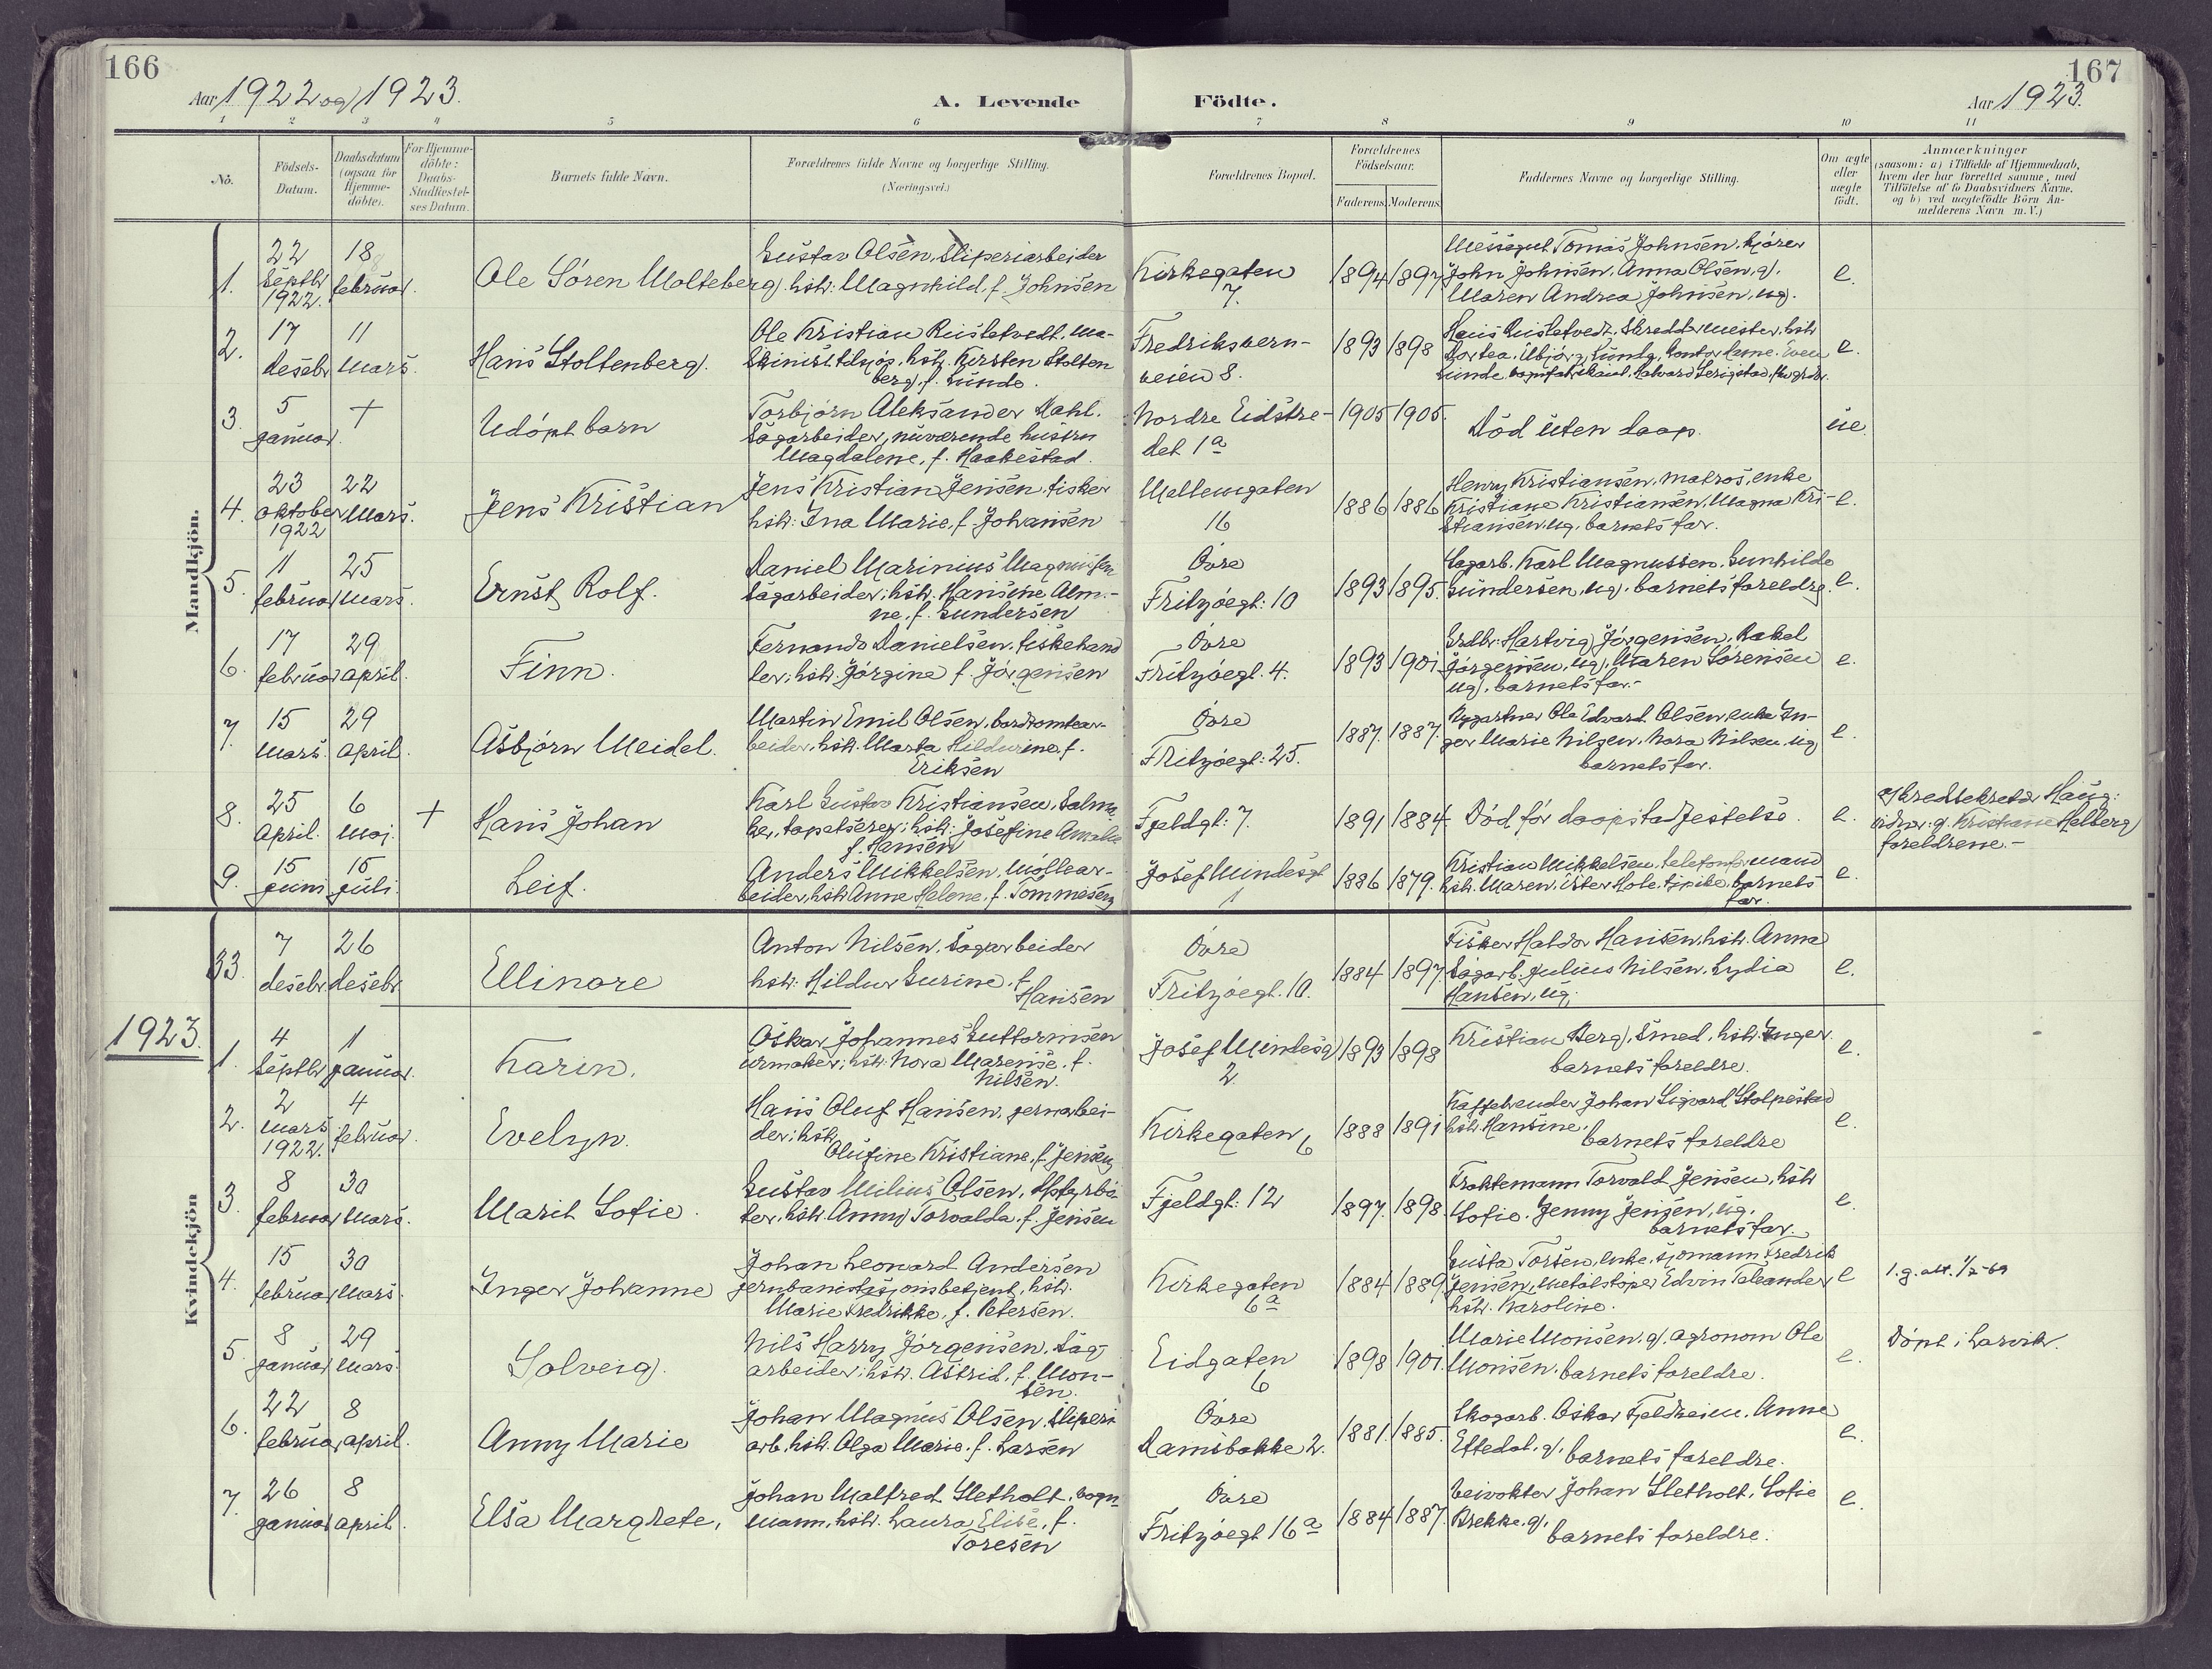 166
Aar 1922 og 1923.
A. Levende
Födte.
167
Aar 1923.
1 2 3 4 5 6 7 8 9 10 11
No.
Födsels-
Datum.
Daabsdatum
(ogsaa for
Hjemme-
döbte).
For Hjemme-
döbte:
Daabs-
Stadfæstel-
ses Datum.
Barnets fulde Navn.
Forældrenes fulde Navne og borgerlige Stilling.
(Næringsvei.)
Forældrenes Bopæl.
Forældrenes
Födselsaar.
Faderens. Moderens.
Faddernes Navne og borgerlige Stilling.
Om ægte
eller
uægte
födt.
Anmærkninger
(saasom: a) i Tilfælde af Hjemmedaab,
hvem der har forrettet samme, med
Tilföielse af to Daabsvidners Navne.
og b) ved uægtefödte Börn An-
melderens Navn m. V.)
Mandkjön.
1.
22
Septbr
1922.
18
februar.
Ole Sören Molteberg.
Gustav Olsen, Sliperiarbeider
hstr: Magnhild, f. Johnsen
Kirkegaten
7.
1894 1897
Tomas Johnsen, kjörer
John Johnsen, Anna Olsen, g.
Maren Andrea Johnsen, ug.
e.
2.
17
desebr
11
mars.
Hans Stoltenberg.
Ole Kristian Ruisletvedt, ma-
skinist tilsjös, hstr. Kirsten Stolten
berg, f. Lunde.
Fredriksvern-
veien 8.
1893 1898
Hans Ruisletvedt, Skreddermester, hstr
Dortea, Asbjörg Lunde, kontordame. Even
Lunde
e.
3.
5
januar.
†
Udöpt barn
Torbjörn Aleksander Dahl.
Sagarbeider, nuværende hustru
Magdalene, f. Haakestad.
Nordre Eidstre-
det 1a
1905 1905.
Död uten daap.
ue.
4.
23
oktober
1922
22
Mars.
Jens Kristian
Jens Kristian Jensen, fisker
hstr: Ina Marie, f. Johansen
Mellemgaten
16
1886 1886
Henry Kristiansen, matros, enke
Kristiane Kristiansen, Magna Kri-
stiansen, ug, barnets far.
e.
5.
11
februar
25
mars.
Ernst Rolf.
Daniel Marinius Magnussen
Sagarbeider; hstr. Hansine Alm-
ne, f. Gundersen
Övre
Fritzöegt: 10
1893 1895.
Sagarb. Karl Magnussen. Gunhilde
Gundersen, ug, barnets foreldre.
e.
6.
17
februar
29
april.
Finn.
Fernando Danielsen, fiskehand
ler; hstr. Jörgine f. Jörgensen
Övre
Fritzöegt. 4.
1893 1901
Grdbr: Hartvig Jörgensen, Rakel
Jörgensen, ug, Maren Sörensen
ug, barnets far.-
e.
7.
15
mars.
29
april.
Asbjörn Meidel.
Martin Emil Olsen, bordtomtear-
beider, hstr. Marta Hildurine, f.
Eriksen
Övre
Fritzöegt: 25.
1887. 1887.
Ole Edvard Olsen, enke In-
ger Marie Nilsen, Nora Nilsen, ug
barnets far.
e.
8.
25
April.
6
Mai.
†
Hans Johan
Karl Gustav Kristiansen, Salma
ker, tapetserer; hstr: Josefine Amalie
f. Hansen
Fjeldgt: 7.
1891 1884.
Död för daapstadfestelse.
e.
Haug:
vidner: g. Kristiane Helberg
foreldrene.-
9.
15
juni
15
juli.
Leif.
Anders Mikkelsen, möllear-
beider, hstr Anne Helene, f. Tommesen
Josef Mindesgt
1
1886 1879.
Kristian Mikkelsen, telefonformand
hstr. Maren, Ester Hole, barnets
far.
e.
Kvindekjön
33.
7
desebr
26
desebr.
Ellinore
Anton Nilsen. Sagarbeider
hstr: Hildur Gurine, f.
Hansen
Övre
Fritzöegt. 10.
1884 1897.
Fisker Haldor Hansen, hstr. Anna
Sagarb. Julius Nilsen. Lydia
Hansen, ug.
e.
1923.
1.
4
Septbr
1
januar.
Karin.
Oskar Johannes Guttormsen
urmaker; hstr. Nora Marense. f.
Nilsen.
Josef Mindesg
2.
1893 1898
Kristian Berg, Smed, hstr Inger
barnets foreldre.
e.
2.
2
mars
1922.
4
februar.
Evelyn.
Hans Oluf Hansen, jernarbei-
der; hstr
Olufine Kristiane, f. Jensen
Kirkegaten 6
1888 1891
Kaffebrender Johan Sigvard Stolpestad
hstr. Hansine.
barnets foreldre
e.
3.
8
februar
30
mars.
Marit Sofie.
Gustav Milius Olsen, fyrbö
ter, hstr. Anny Torvalda. f. Jensen
Fjeldgt: 12
1897. 1898.
Fraktemann Torvald Jensen, hstr
Sofie. Jenny Jensen, ug.
barnets far.
e.
4.
15
februar
30
mars.
Inger Johanne
Johan Leonard Andersen
jernbanestasjonsbetjent, hstr.
Marie Fredrikke, f. Petersen.
Kirkegaten
6a
1884 1889.
Gusta Torsen, enke, sjömann Fredrik
Jensen, metalstöper Edvin Taleander
hstr. Karoline.
e
1.g. att. 1/2-69
5.
8
januar
29
mars.
Solveig.
Nils Harry Jörgensen. Sag-
arbeider; hstr. Astrid, f. Mon-
sen.
Eidgaten
6
1898 1901.
Marie Monsen, g. agronom Ole
Monsen, barnets foreldre.
e.
Döpt i Larvik.
6.
22
februar
8
april.
Anny Marie
Johan Magnus Olsen. Sliperi
arb. hstr. Olga Marie. f. Larsen
Övre
Damsbakke 2.
1881. 1885.
Skogarb. Oskar Fjeldheim. Anne
Eftedal, g, barnets foreldre.
e.
7.
26
januar
8
april.
Elsa Margrete.
Johan Malfred Sletholt, vogn
mann, hstr. Laura Elise, f.
Toresen
Övre
Fritzöegt 16a
1884 1887.
Veivokter Johan Sletholt. Sofie
Brekke, g,
barnets foreldre.
e.